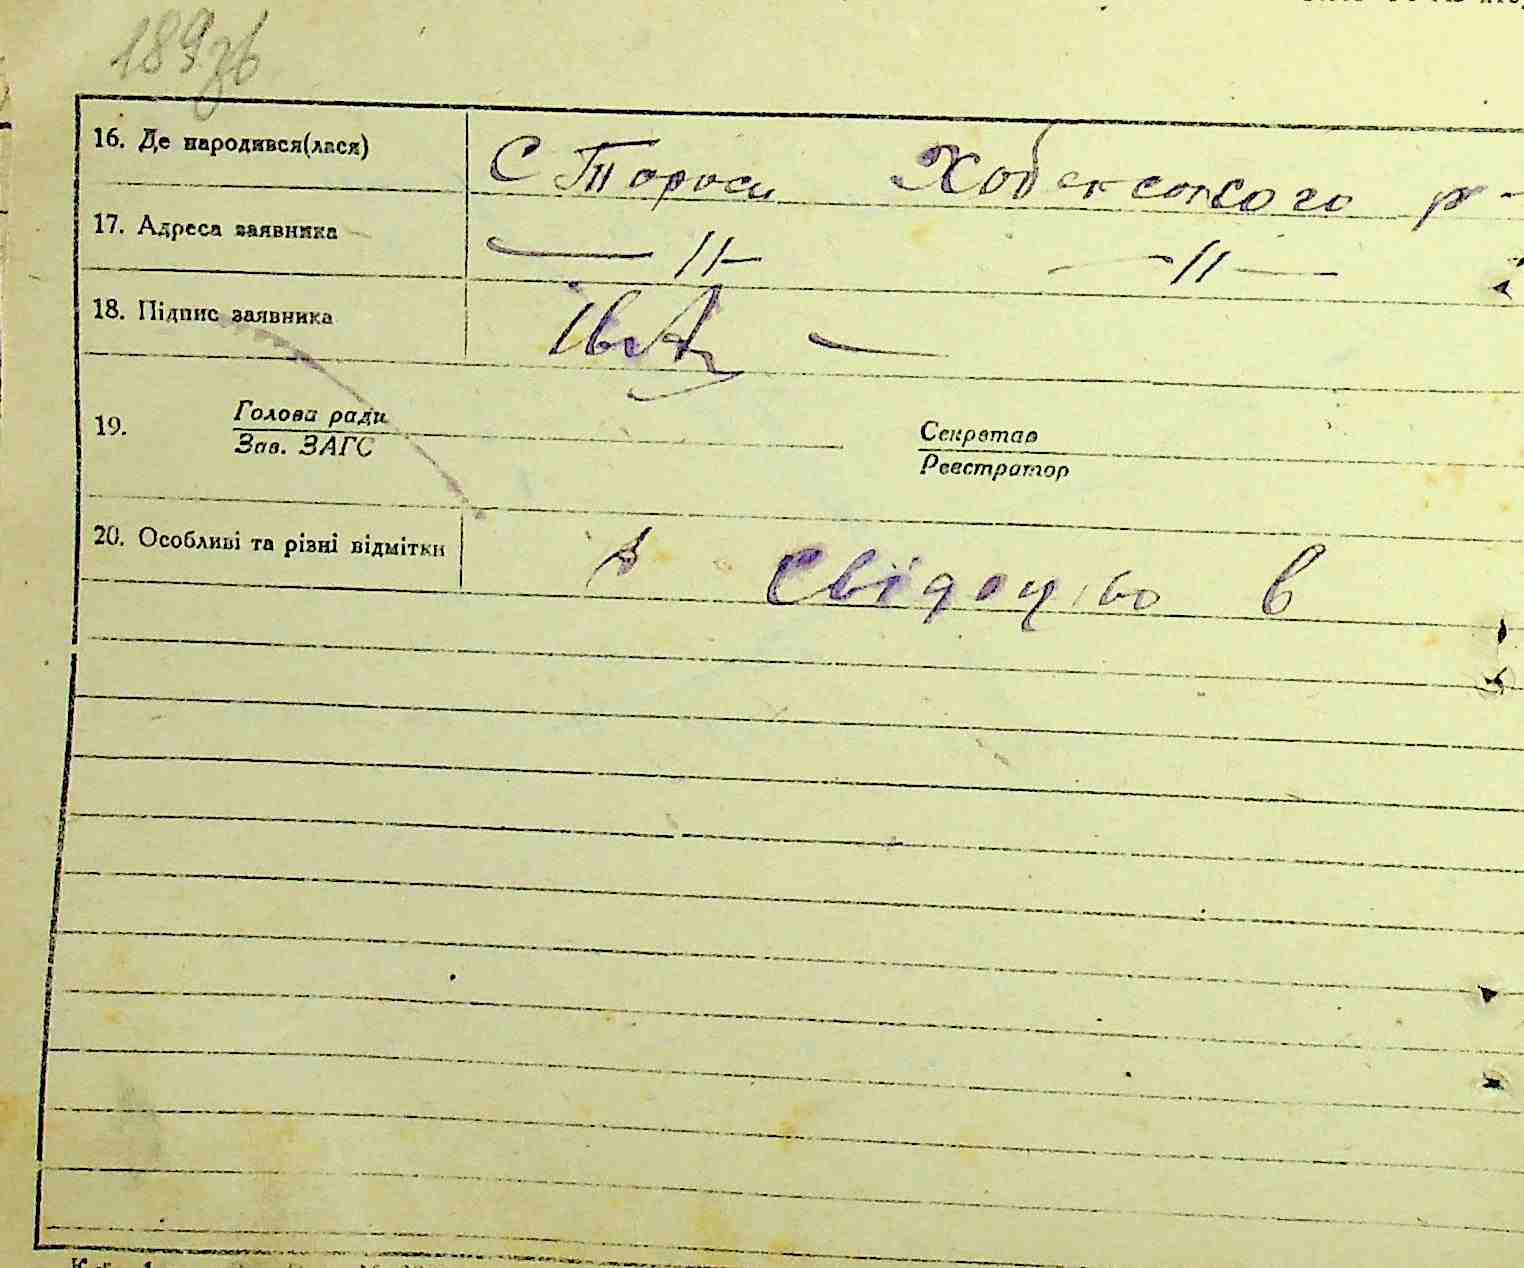 189зв
16. Де народився(лася) С Тараси Хабенского р-
17. Адреса заявника — 11 — — 11 —
18. Підпис заявника
19. Голова ради Секретар
Зав. ЗАГС Реєстратор
20. Особливі та різні відмітки Свідоцтво в